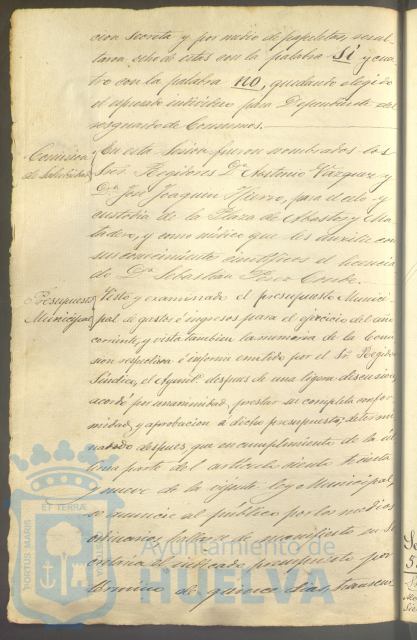 cion secreta y por medio de papeletas, resul-
taron ocho de estas con la palabra Sí y cua-
tro con la palabra no, quedando elegido
el espresado individuo para Dependiente del
resguardo de Consumos.
Comision
de Salubridad
En esta Sesion fueron nombrados los
Sres. Regidores Dn. Antonio Vazquez y
Dn. José Joaquin Hierro, para el celo y
custodia de la Plaza de Abastos y Ma-
tadero, y como médico que les auxilie con
sus conocimientos cientificos el licencia-
do Dn. Sebastian Perez
Presupuesto
Municipal
Visto y examinado el presupuesto Munici-
pal de gastos é ingresos para el ejercicio del año
corriente, y vista tambien la memoria de la Comi-
sion respectiva é informe emitido por el Sr. Regidor
Síndico, el Ayunto. despues de una ligera discusion,
acordó por unanimidad, prestar su completa confor-
midad, y aprobacion á dicho presupuesto, determi-
nando despues, que en cumplimiento de la úl-
tima parte del artículo ciento treinta
y nueve de la vigente ley Municipal,
se anuncie al público por los medios
ordinarios, de manifiesto en Se-
cretaria el indicado presupuesto por
término de quince dias, transcur-
PORTUS MARIS
ET TERRÆ
CUSTODIA
Ayuntamiento de
HUELVA